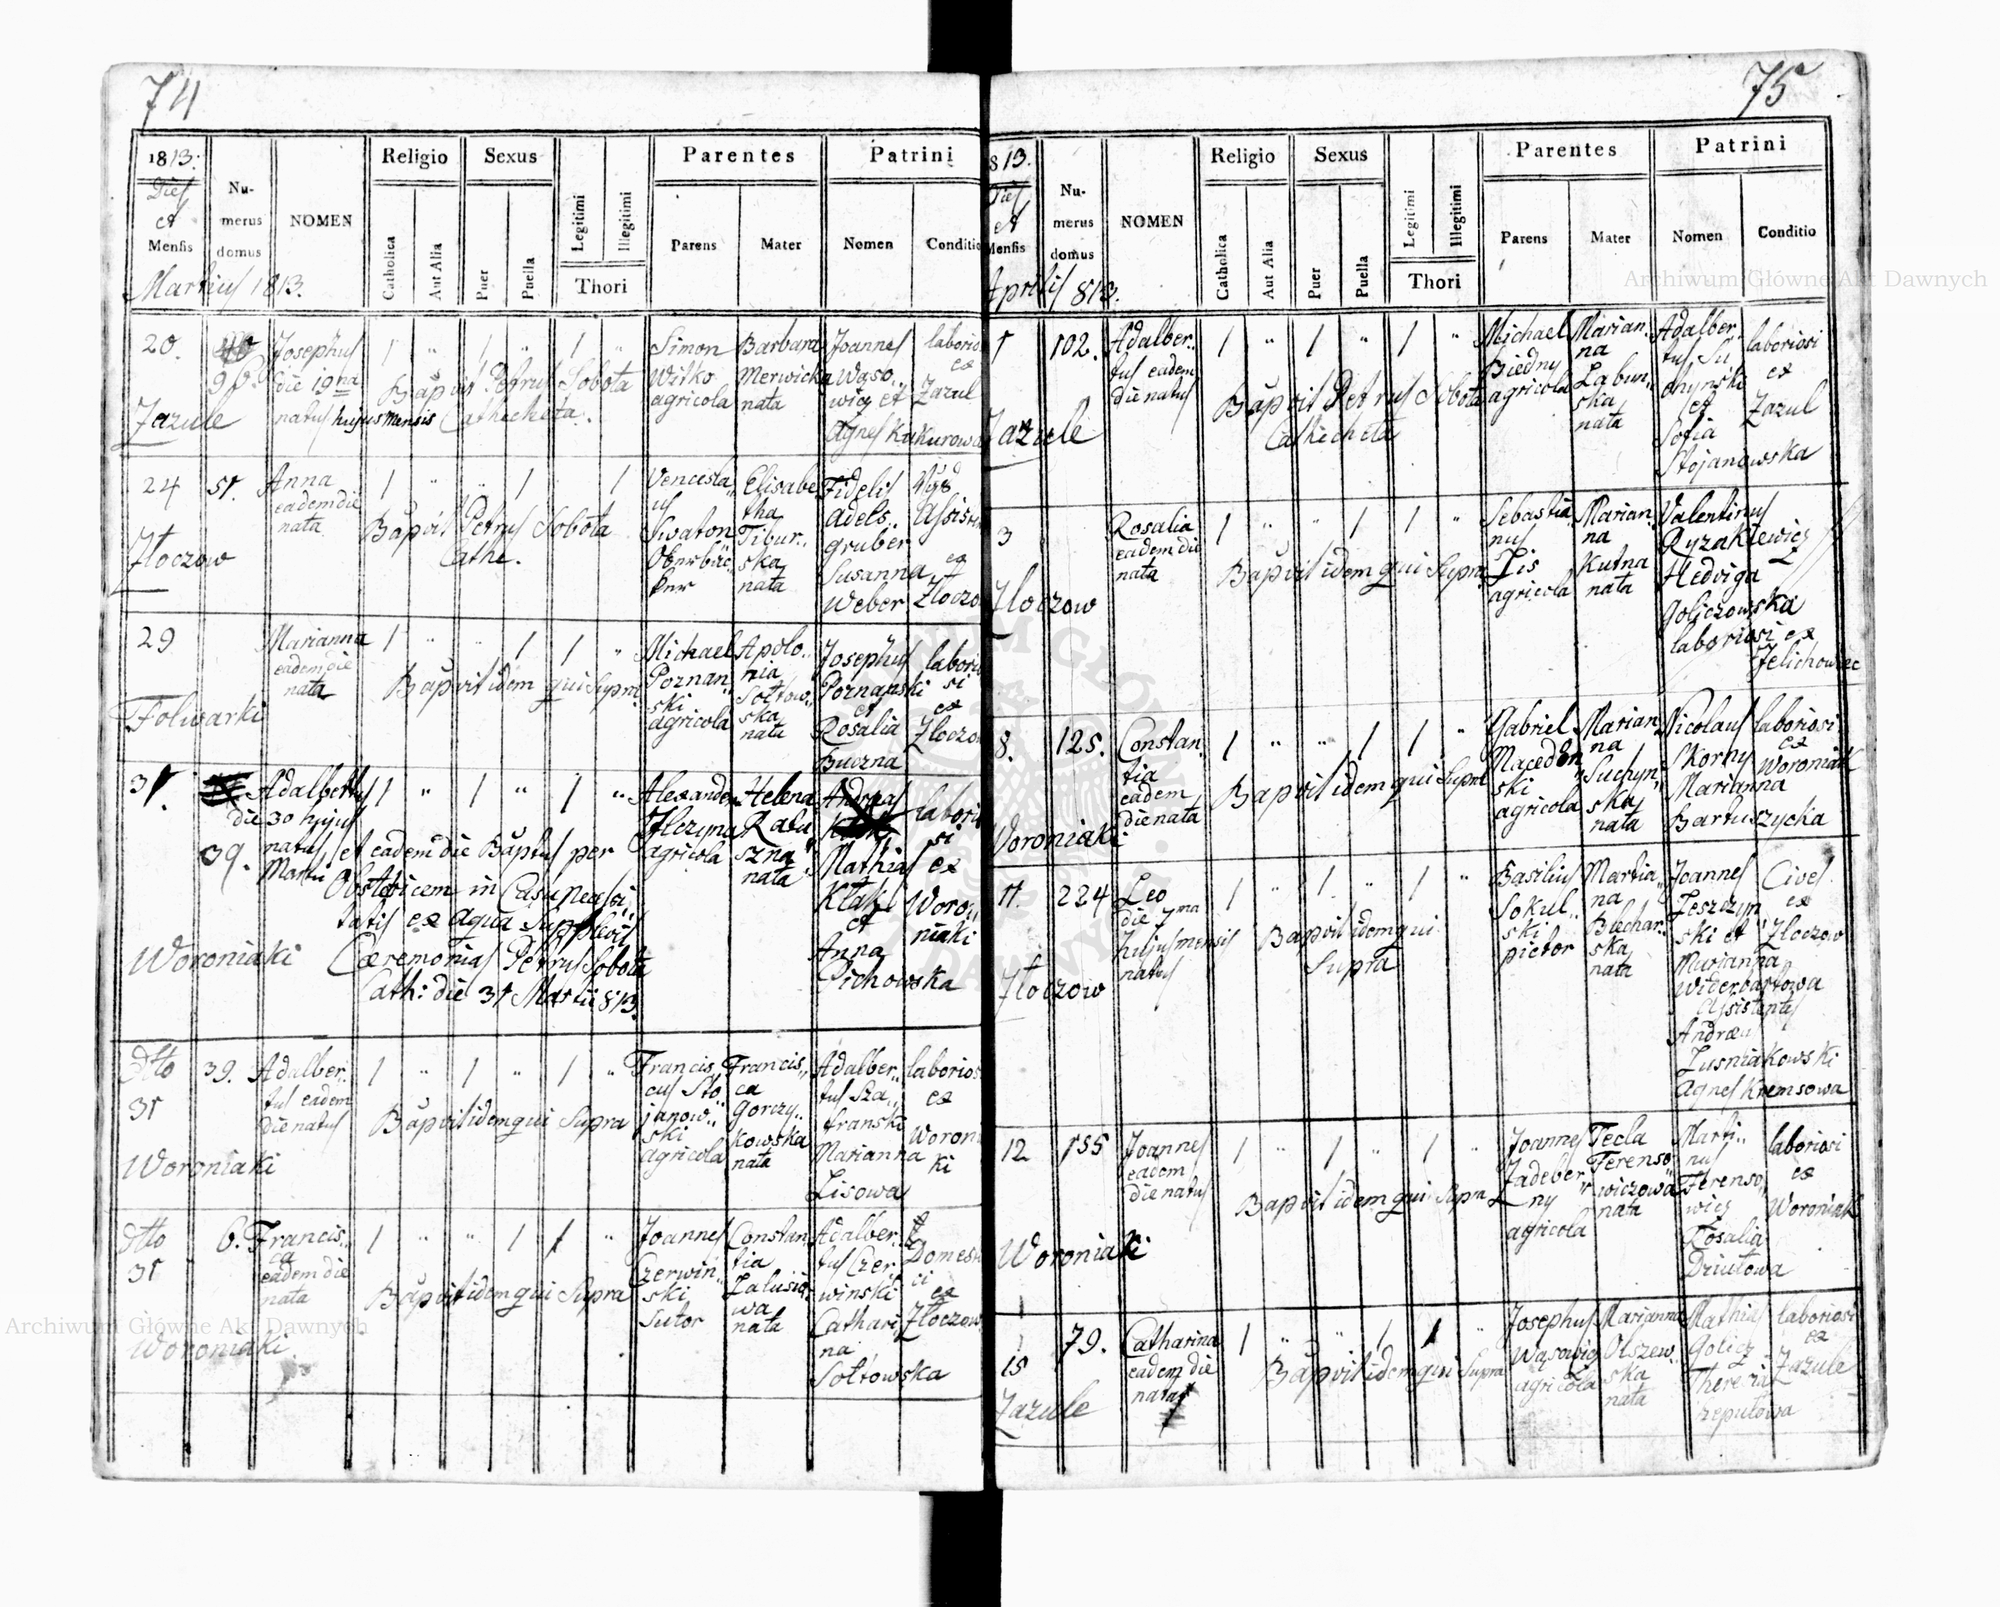 74
1813.
Dies
et
Mensis
Numerus
domus
NOMEN
Religio
Catholica
Aut Alia
Sexus
Puer
Puella
Legitimi
Illegitimi
Thori
Parentes
Parens
Mater
Patrini
Nomen
Conditio
Martius 1813.
20.
Zazule
Josephus
die 19na
natus hujus mensis
Bapvit Petrus Sobota
Cathecheta.
Simon
Witko
agricola
Barbara
Merwicka
nata
Joannes
Wąso„
wicz et
Agnes Kukurowa
laborio
ex
Zazul
24
51.
Złoczow
Anna
eadem die
nata
Bapvit Petrus Sobota
Cathe.
Vencesla„
us
Swaton
Elisabe„
tha
Tibur„
ska
nata
Fidelis
Adels„
gruber
Susanna
Weber
ex
Złoczo
29
Folwarki
Marianna
eadem die
nata
Bapvit idem qui Supra
Michael
Poznan„
ski
agricola
Apolo„
nia
Sołtow„
ska
nata
Josephus
Poznanski
et
Rosalia
Buczna
labori
si
ex
Zloczo
31.
39.
Woroniaki
Adalbertus
die 30 hujus
natus et eadem die Baptus per
Martii Obstetricem in Casu necessi„
tatis ex aqua Supplevit
Cæremonias Petrus Sobota
Cath: die 31 Martii 813.
Alexander
agricola
Helena
nata
Andreas
Mathias
Kłak
et
Anna
Cichowska
labori
si
ex
Woro„
niaki
dtto
31
39.
Woroniaki
Adalber„
tus eadem
die natus
Bapvit idem qui Supra
Francis„
cus Sto„
janow„
ski
agricola
Francis„
ca
Gorczy„
kowska
nata
Adalber„
tus Sza„
franski
Marianna
Lisowa
laborios
ex
Woron
ki
dtto
31
6.
Woroniaki.
Francis„
ca
eadem die
nata
Bapvit idem qui Supra
Joannes
Czerwin„
ski
Sutor
Constan
tia
Zalusio„
wa
nata
Adalber„
tus Czer„
winski
Cathari„
na
Sołtowska
Domes
ci
ex
Złoczow
75
813.
Dies
et
Mensis
Numerus
domus
NOMEN
Religio
Catholica
Aut Alia
Sexus
Puer
Puella
Legitimi
Illegitimi
Thori
Parentes
Parens
Mater
Patrini
Nomen
Conditio
Aprilis 813.
1
102.
Zazule
Adalber„
tus eadem
die natus
Bapvit Petrus Sobota
Cathecheta
Michael
Biedny
agricola
Marian„
na
Labun„
ska
nata
Adalber„
tus Su
chynski
et
Sofia
Stojanowska
laboriosi
ex
Zazul
3
Zloczow
Rosalia
eadem die
nata
Bapvit idem qui Supra
Sebastia
nus
Lis
agricola
Marian„
na
Kutna
nata
Valentinus
Ryzakiewicz
Hedviga
Goliczowska
laboriosi ex
Jelichowiec
8.
125.
Woroniaki
Constan„
tia
eadem
die nata
Bapvit idem qui Supra
Gabriel
Macedon
ski
agricola
Marian„
na
Suchyn„
ska
nata
Nicolaus
Skorny
Marianna
Bartuszycka
laboriosi
ex
Woroniak
11
224
Złoczow
Leo
die 7ma
hujus mensis
natus
Bapvit idem qui
Supra
Basilius
Sokul„
ski
pictor
Martia„
na
Blechar„
ska
nata
Joannes
Leszczyn
ski et
Marianna
Widerbartowa
Assistentes
Andreas
Lusniakowski
Agnes Kremsowa
Cives
ex
Złoczow
12
155
Woroniaki
Joannes
eadem
die natus
Bapvit idem qui Supra
Joannes
Zadeber„
ny
agricola
Tecla
Ferenso
wiczowa
nata
Marti„
nus
Ferenso„
wicz
Rosalia
Dziutowa
laboriosi
ex
Woroniak
15
79.
Zazule
Catharina
eadem die
nata
Bapvit idem qui Supra
Josephus
Wąsowicz
agricola
Marianna
Olszew„
ska
nata
Mathias
Golicz
Theresia
rzeputowa
laboriosi
ex
Zazule
Archiwum Główne Akt Dawnych
Archiwum Główne Akt Dawnych